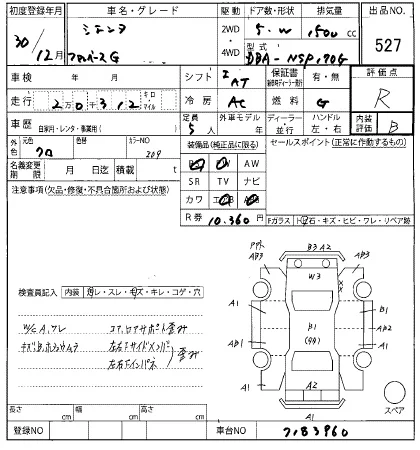 初度登録年月 車名・グレード 駆動 ドア数・形状 排気量 出品NO.
30/12月 シエンタ 2WD 5・W 1500cc 527
ファンベースG 4WD 型式 DBA-NSP170G
車検 年 月 シフト IAT 保証書 有・無 評価点
走行 2万0千312 キロ マイル 冷房 AC 燃料 G R
車歴 自家用・レンタ・事業用( ) 定員 5人 外車モデル 年 ディーラー・並行 ハンドル 左・右 内装評価 B
外色 元色 クロ 色替 カラーNO 209
装備品(純正品に限る) セールスポイント(正常に作動するもの)
名義変更期限 月 日迄 積載 t
PS PW AW
SR TV ナビ
カワ エアB ABS
R券 10.360円
注意事項(欠品・修復・不具合箇所および状態)
Fガラス トビ石・キズ・ヒビ・ワレ・リペア跡
検査員記入 内装 ヨゴレ・スレ・キズ・キレ・コゲ・穴
W/C A、ワレ コア, ロアサポート歪み
左右サイドメンバー 歪み
左右インパネ
B3 A2
AB3 AB3
W3
A1 B1
B1 AB2
(99)
AB1 A1
A1 A2
A1
スペア
長さ cm 幅 cm 高さ cm
登録NO 車台NO 7183960